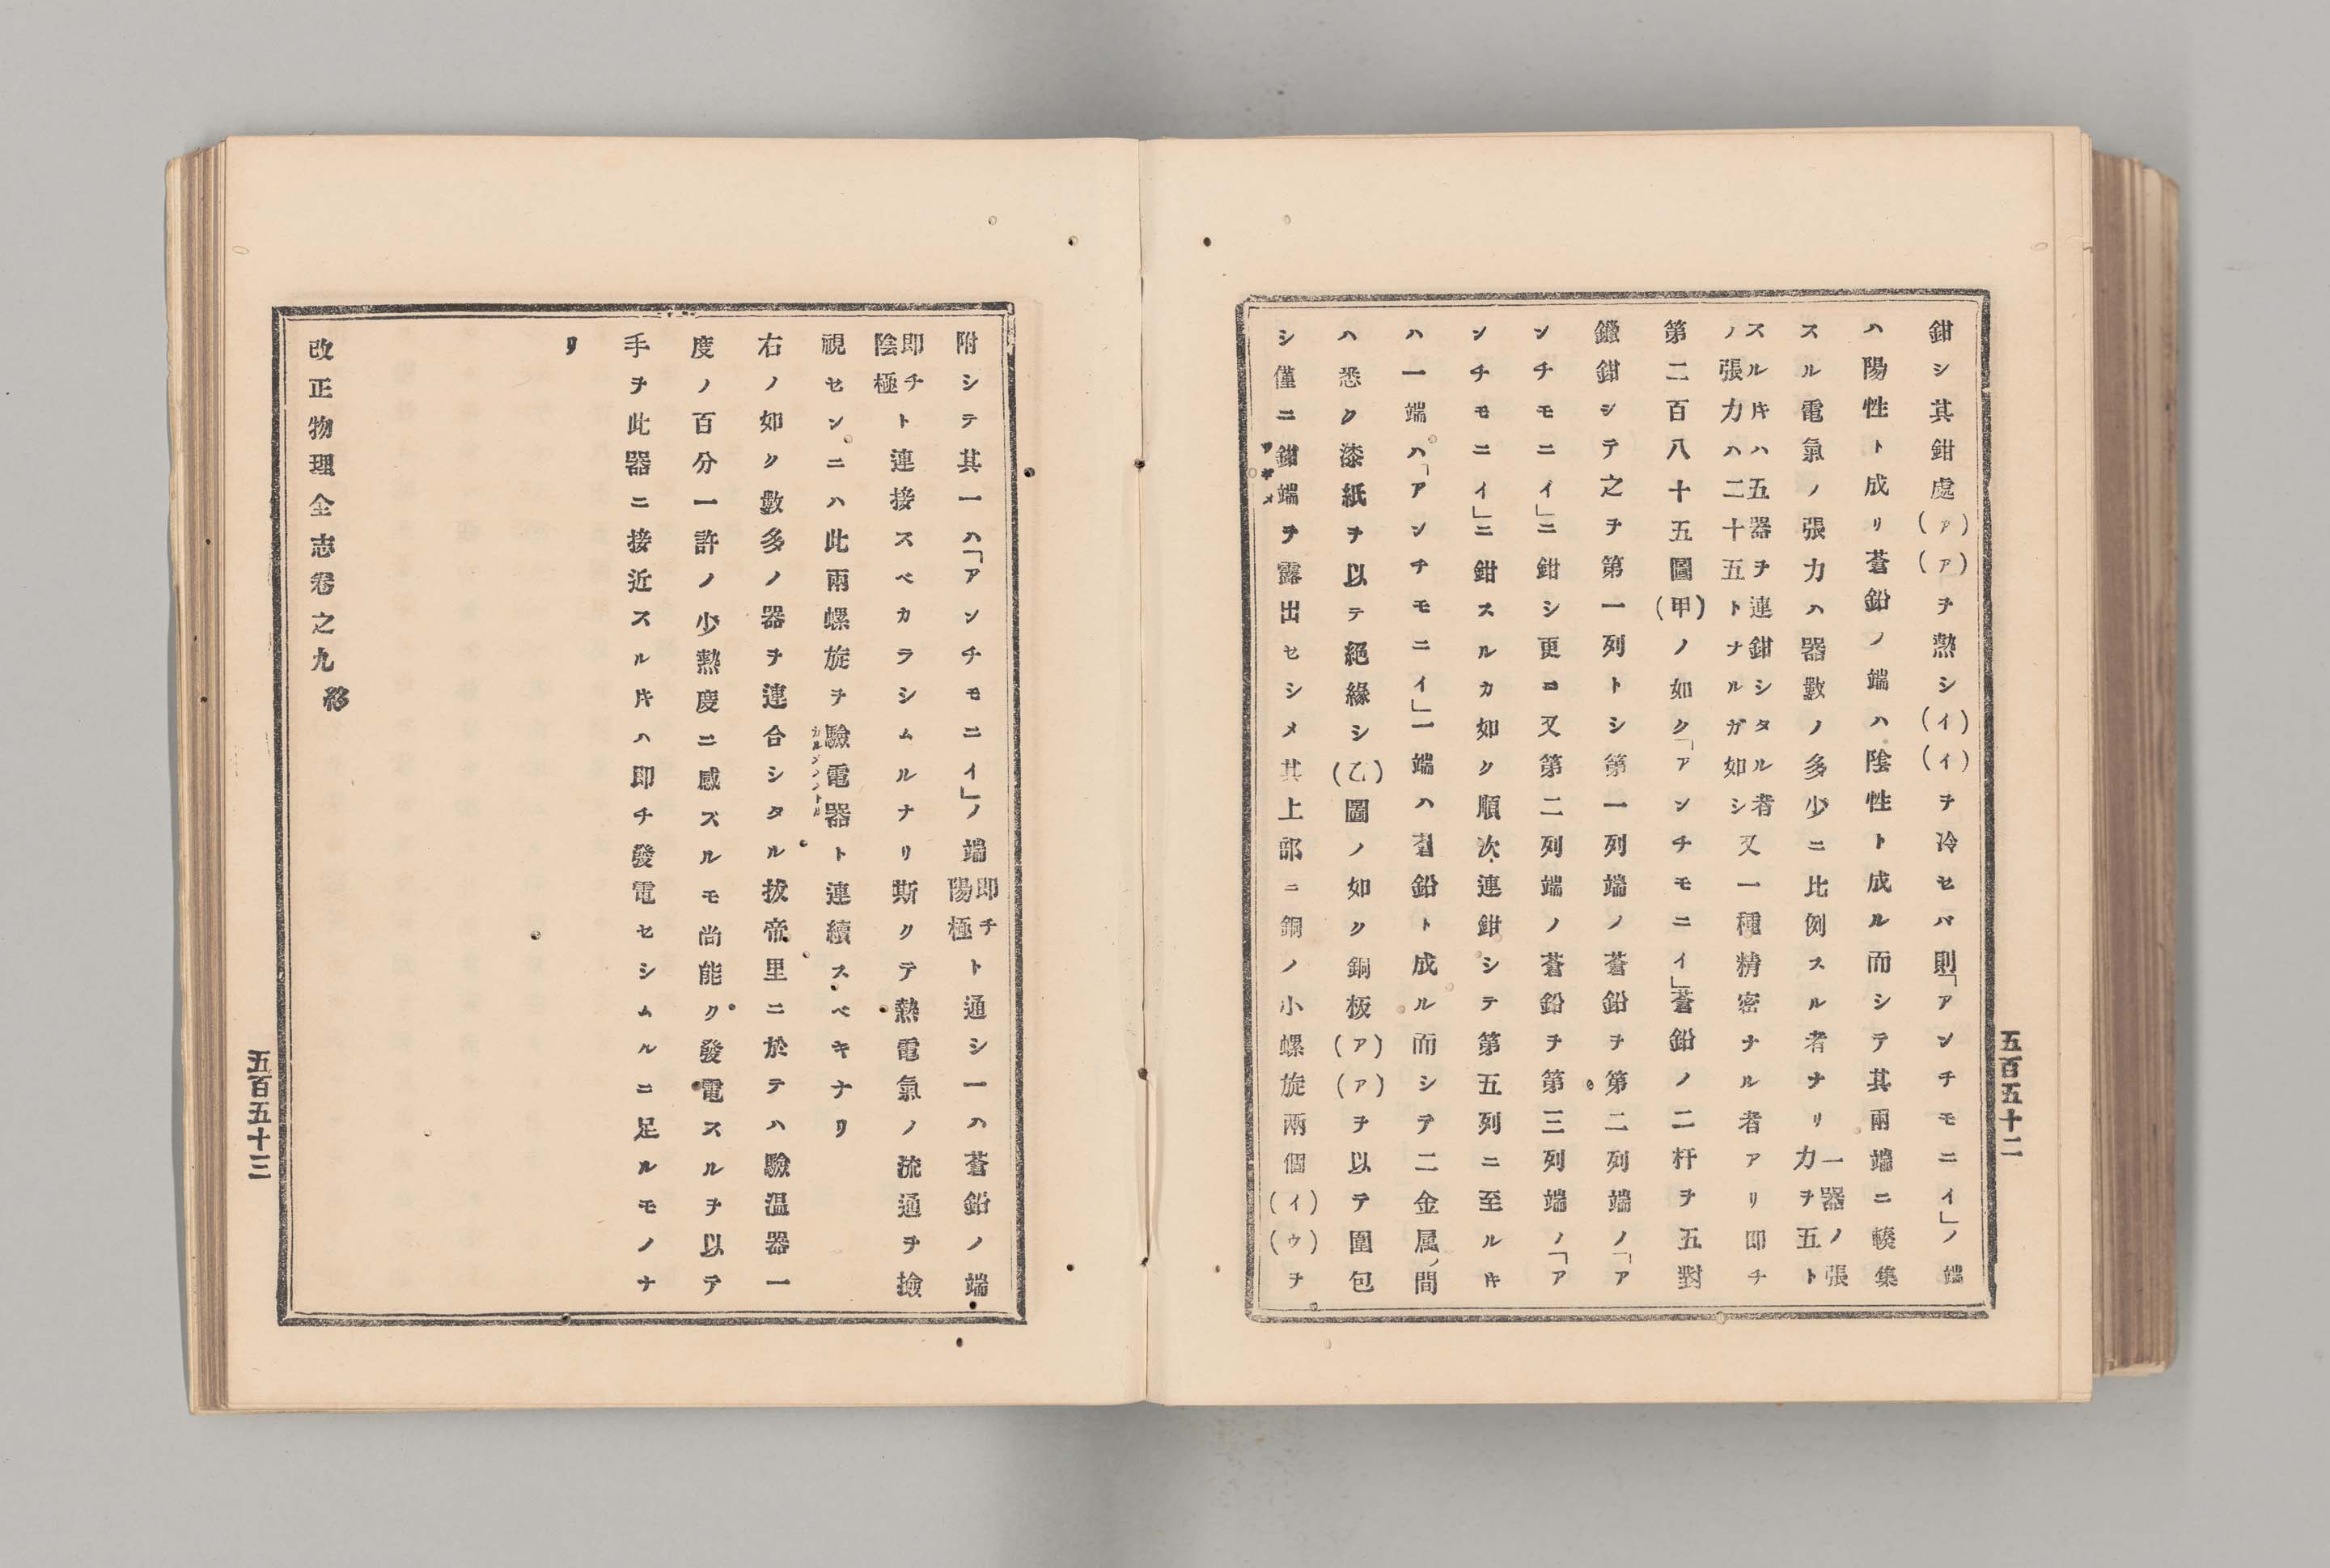 鉗シ其鉗處(ア)(ア)ヲ熱シ(イ)(イ)ヲ冷セバ則「アンチモニイ」ノ端
ハ陽性ト成リ蒼鉛ノ端ハ陰性ト成ル而シテ其兩端ニ輳集
スル電氣ノ張力ハ器數ノ多少ニ比例スル者ナリ一器ノ張力ヲ五ト
スル𪜈ハ五器ヲ連鉗シタル者ノ張力ハ二十五トナルガ如シ又一種精密ナル者アリ即チ
第二百八十五圖(甲)ノ如ク「アンチモニイ」蒼鉛ノ二杆ヲ五對
鑞鉗シテ之ヲ第一列トシ第一列端ノ蒼鉛ヲ第二列端ノ「ア
ンチモニイ」ニ鉗シ更ニ又第二列端ノ蒼鉛ヲ第三列端ノ「ア
ンチモニイ」ニ鉗スルカ如ク順次連鉗シテ第五列ニ至ル𪜈
ハ一端ハ「アンチモニイ」一端ハ蒼鉛ト成ル而シテ二金属ノ間
ハ悉ク漆紙ヲ以テ絕緣シ(乙)圖ノ如ク銅板(ア)(ア)ヲ以テ圍包
シ僅ニ鉗端ヲ露出セシメ其上部ニ銅ノ小螺旋兩個(イ)(ウ)ヲ
五百五十二
附シテ其一ハ「アンチモニイ」ノ端即チ陽極ト通シ一ハ蒼鉛ノ端
即チ陰極ト連接スベカラシムルナリ斯クテ熱電氣ノ流通ヲ撿
視センニハ此兩螺旋ヲ驗電器ト連續スベキナリ
右ノ如ク數多ノ器ヲ連合シタル拔帝里ニ於テハ驗温器一
度ノ百分一許ノ少熱度ニ感ズルモ尚能ク發電スルヲ以テ
手ヲ此器ニ接近スル𪜈ハ即チ發電セシムルニ足ルモノナ
リ
改正物理全志卷之九終
五百五十三